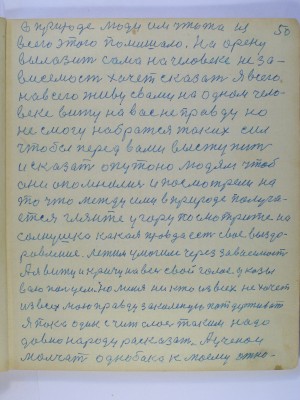 50
О природе люди им чтото из
всего этого помешало. На арену
вылазит сама на человеке неза-
висемост хочет сказат Я всего.
навсего живу с вами на одном чело-
веке вижу на вас неправду но
не смогу набратся таких сил
чтобы перед вами выступит
и сказат опутоно людям чтоб
они опомнились и посмотрели на
то что между ими в природе получа-
ется гляньте у гору посмотрите на
солнушко какая правда ест свое выздо-
равление. легким умогим через зависимост
А я вижу и кричу на вес свой голос
вам но меня ни кто из вех не хочет
из всех мою правду законную поддерживат
Я пока один считмое таким надо
давно народу расказат. А ученои
молчат однобоко к моему отно-